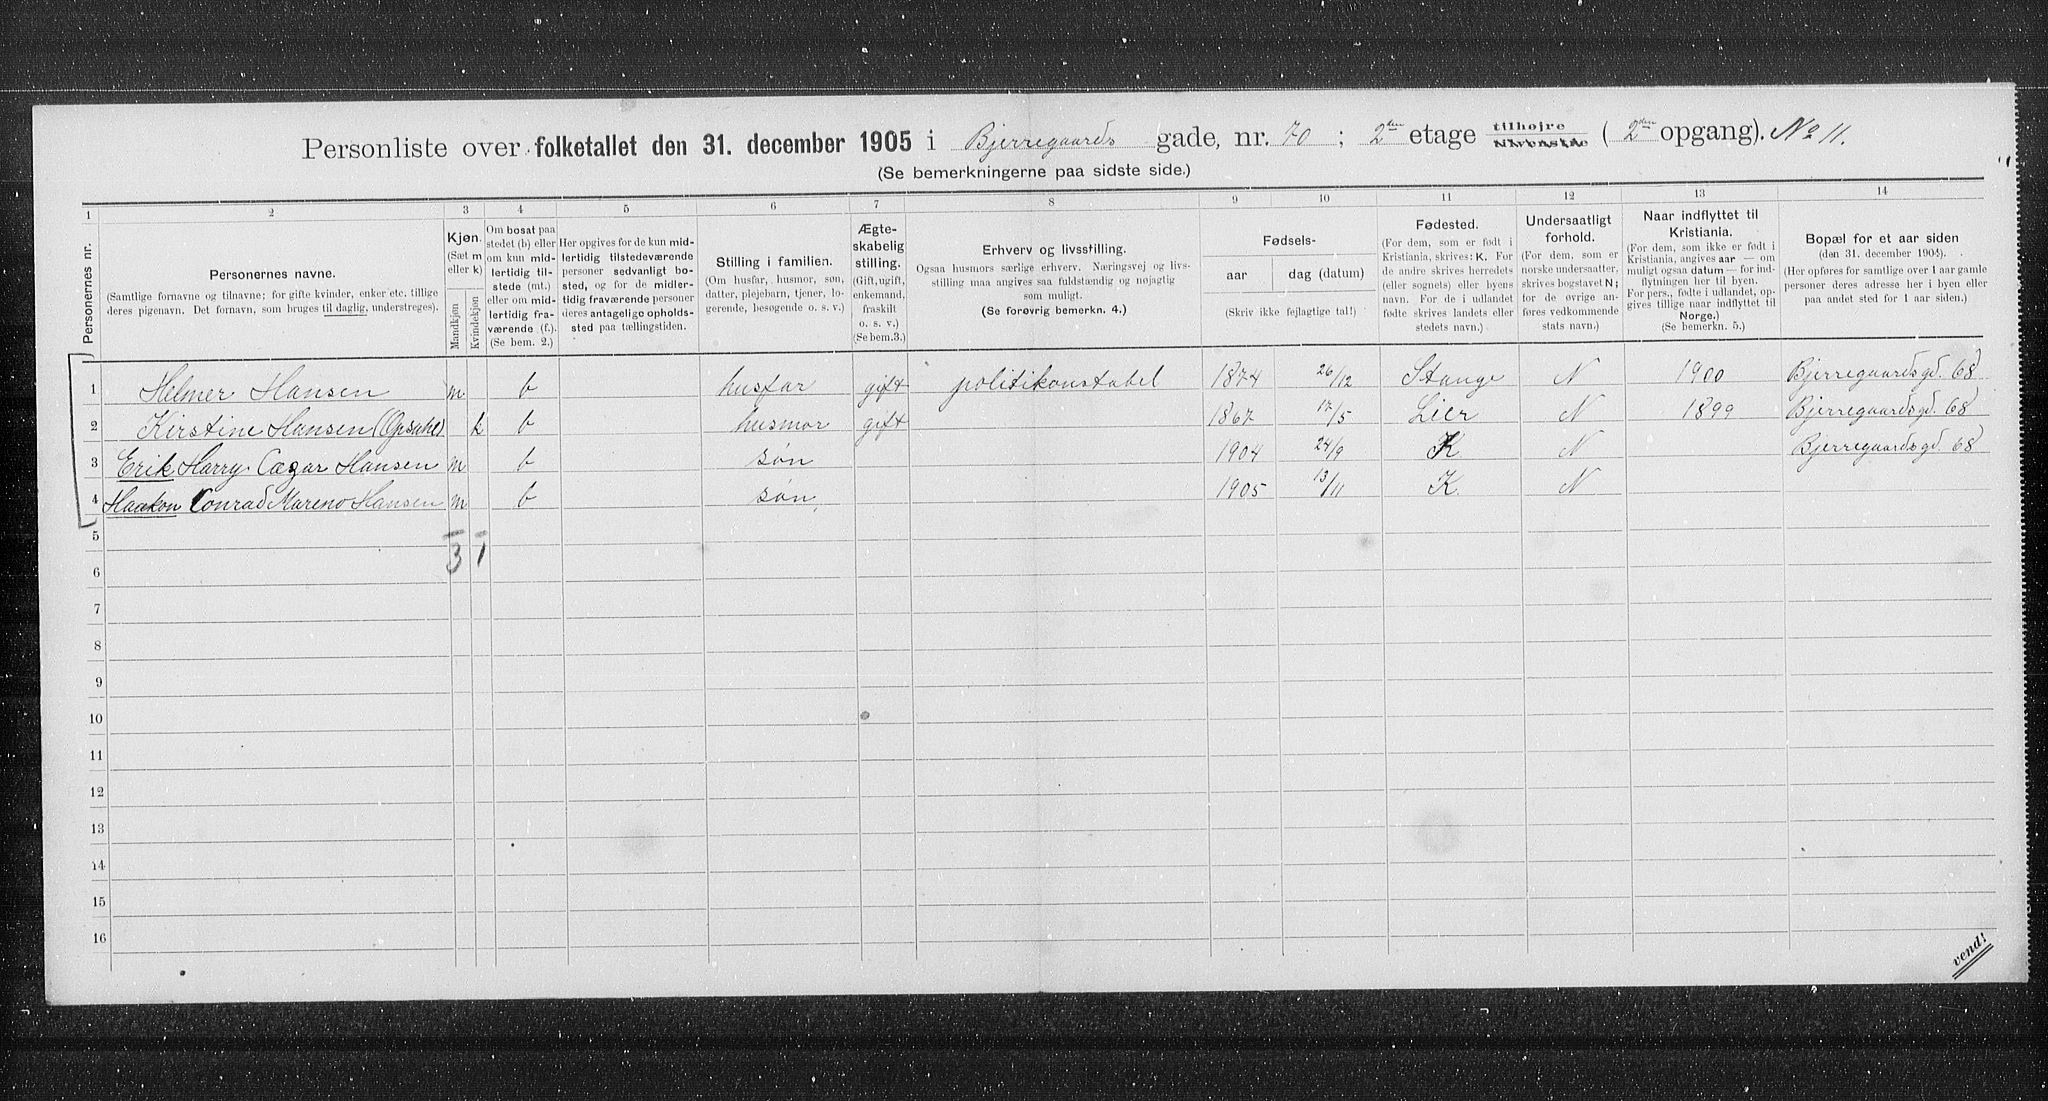 Personliste over folketallet den 31. december 1905 i Bjerregaards gade, nr. 70 ; 2den etage tilhøjre tilvenstre ( 2den opgang). No 11.
(Se bemerkningerne paa sidste side.)
1 2 3 4 5 6 7 8 9 10 11 12 13 14
Personernes nr.
Personernes navne.
(Samtlige fornavne og tilnavne; for gifte kvinder, enker etc. tillige
deres pigenavn. Det fornavn, som bruges til daglig, understreges).
Kjøn.
(Sæt m
eller k)
Mandkjøn
Kvindekjøn
Om bosat paa
stedet (b) eller
om kun mid-
lertidig til-
stede (mt.)
eller om mid-
lertidig fra-
værende (f.).
(Se bem. 2.)
Her opgives for de kun mid-
lertidig tilstedeværende
personer sedvanligt bo-
sted, og for de midler-
tidig fraværende personer
deres antagelige opholds-
sted paa tællingstiden.
Stilling i familien.
(Om husfar, husmor, søn,
datter, plejebarn, tjener, lo-
gerende, besøgende o. s. v.)
Ægte-
skabelig
stilling.
(Gift, ugift,
enkemand,
fraskilt
o. s. v.)
(Se bem. 3.)
Erhverv og livsstilling.
Ogsaa husmors særlige erhverv. Næringsvej og livs-
stilling maa angives saa fuldstændig og nøjagtig
som muligt.
(Se forøvrig bemerkn. 4.)
Fødsels-
aar dag (datum)
(Skriv ikke fejlagtige tal!)
Fødested.
(For dem, som er født i
Kristiania, skrives: K. For
de andre skrives herredets
(eller sognets) eller byens
navn. For de i udlandet
fødte skrives landets eller
stedets navn.)
Undersaatligt
forhold.
(For dem, som er
norske undersaatter,
skrives bogstavet N;
for de øvrige an-
føres vedkommende
stats navn.)
Naar indflyttet til
Kristiania.
(For dem, som ikke er født i
Kristiania, angives aar — om
muligt ogsaa datum — for ind-
flytningen her til byen.
For pers., fødte i udlandet, op-
gives tillige naar indflyttet til
Norge.)
(Se bemerkn. 5.)
Bopæl for et aar siden
(den 31. december 1904).
(Her opføres for samtlige over 1 aar gamle
personer deres adresse her i byen eller
paa andet sted for 1 aar siden.)
1 Helmer Hansen m b husfar gift politikonstabel 1874 26/12 Stange N 1900 Bjerregaardsgd. 68
2 Kirstine Hansen (Opsahl) k b husmor gift 1867 17/5 Lier N 1899 Bjerregaardsgd. 68
3 Erik Harry Cæzar Hansen m b søn 1904 24/9 K N Bjerregaardsgd. 68
4 Haakon Conrad Mareno Hansen m b søn 1905 13/11 K. N
5
3 1
6
7
8
9
10
11
12
13
14
15
16
vend!